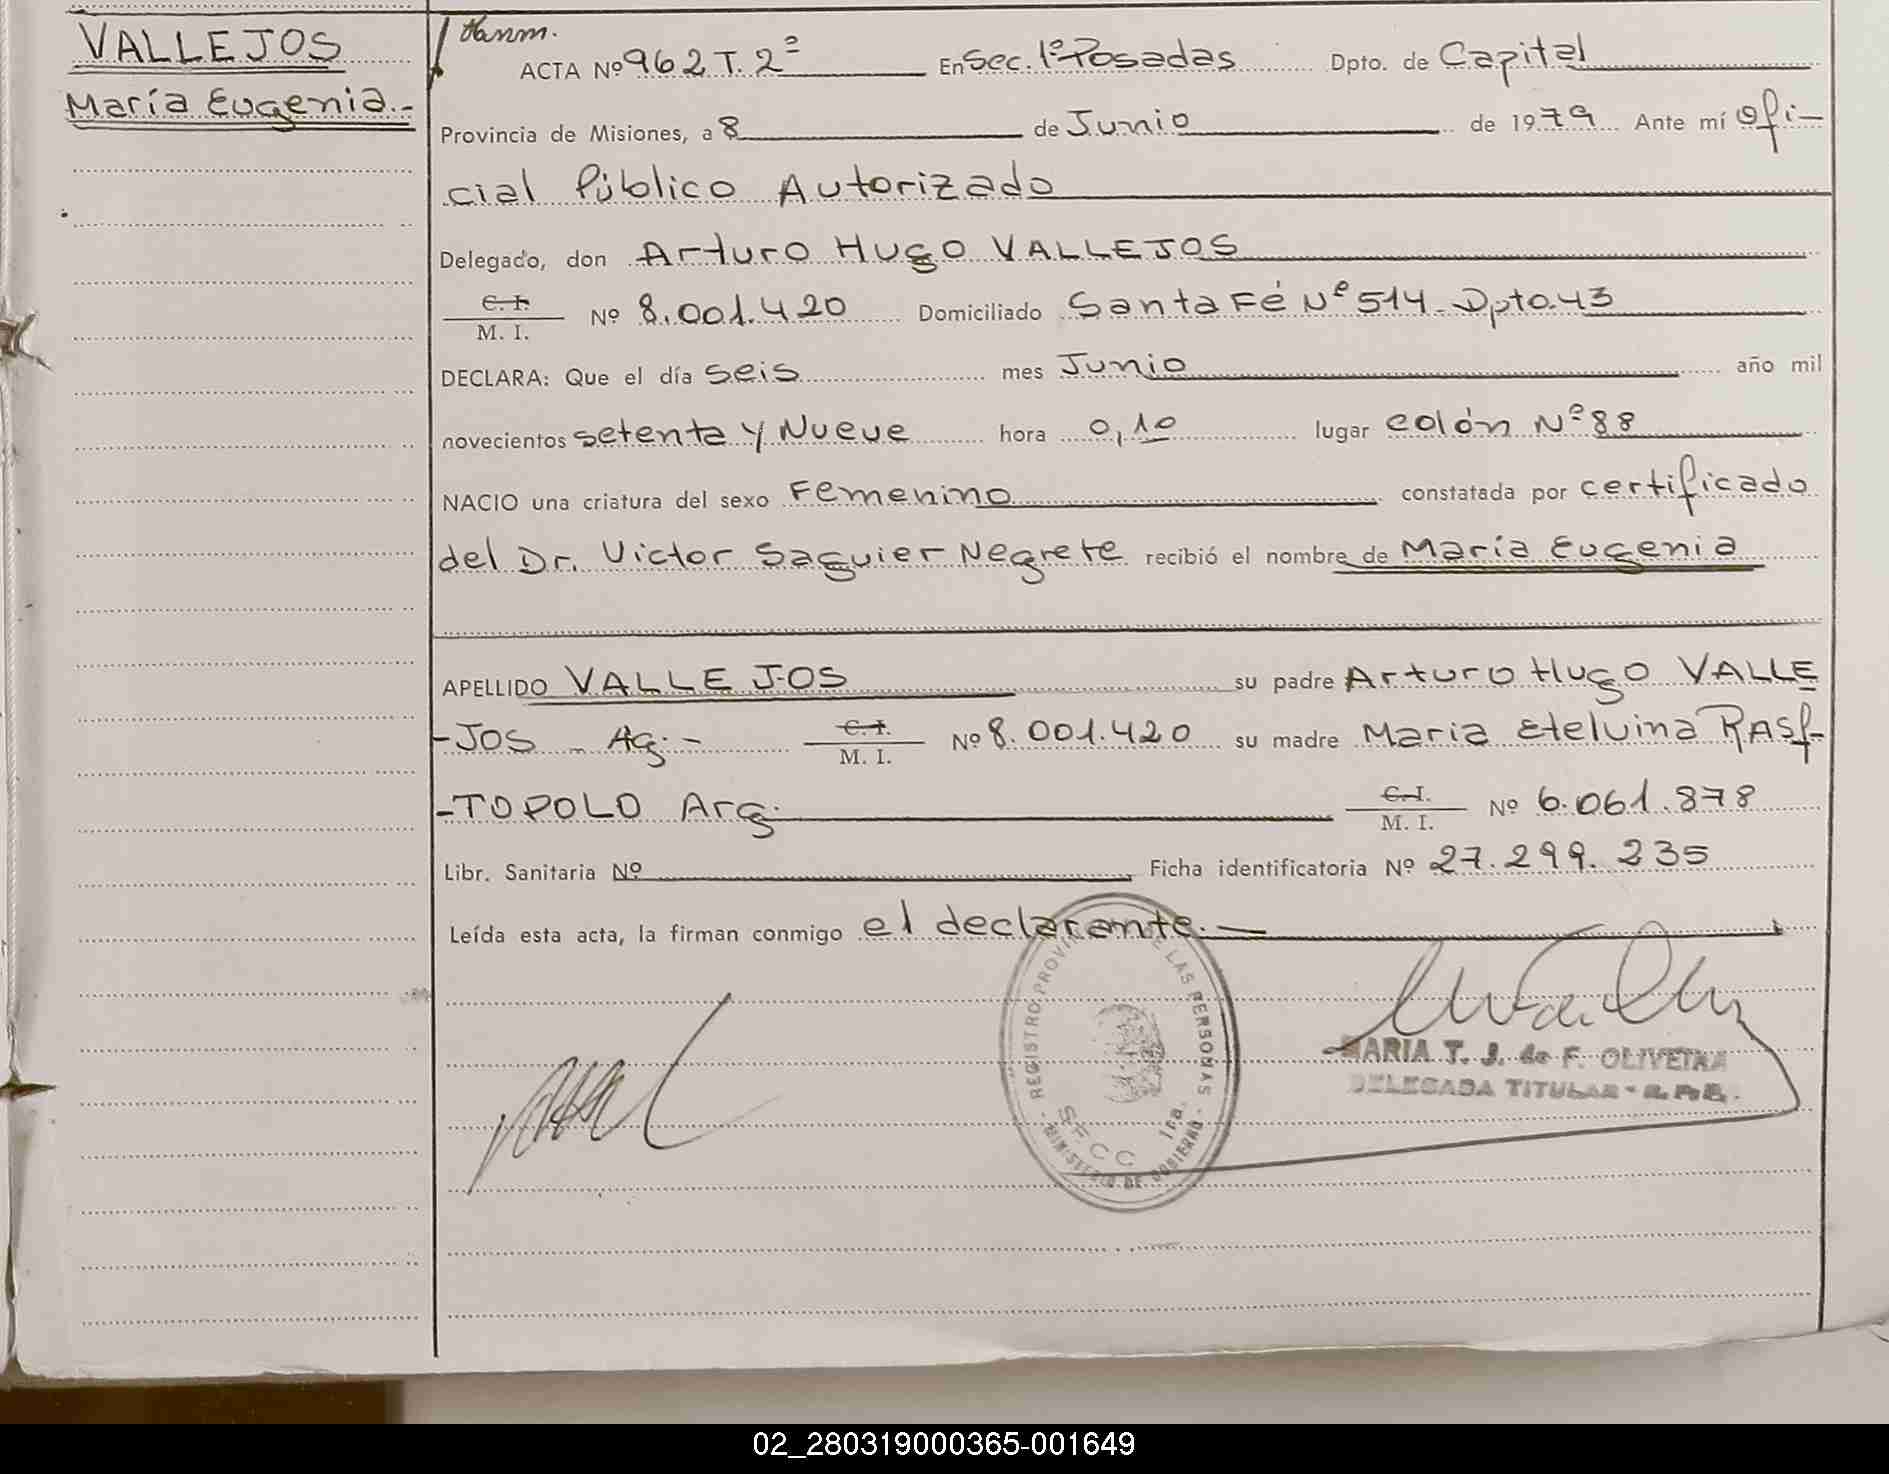 VALLEJOS
María Eugenia.-
ACTA Nº 962 T. 2º En Sec. 1º Posadas Dpto. de Capital
Provincia de Misiones, a 8 de Junio de 1979 Ante mí Ofi-
cial Público Autorizado
Delegado, don Arturo Hugo VALLEJOS
C. I.
M. I. Nº 8.001.420 Domiciliado Santa Fé Nº 514 - Dpto. 43
DECLARA: Que el día seis mes Junio año mil
novecientos setenta y Nueve hora 0,10 lugar Colón Nº 88
NACIO una criatura del sexo Femenino constatada por certificado
del Dr. Victor Saguier Negrete recibió el nombre de María Eugenia
APELLIDO VALLEJOS su padre Arturo Hugo VALLE
-JOS - Ag.- C. I. M. I. Nº 8.001.420 su madre Maria Etelvina RASF-
-TOPOLO Arg. C. I. M. I. Nº 6.061.878
Libr. Sanitaria Nº Ficha identificatoria Nº 27.299.235
Leída esta acta, la firman conmigo el declarante.-
REGISTRO PROVI DE LAS PERSONAS
S F C C 1ra.
MINISTERIO DE GOBIERNO
MARIA T. J. de F. OLIVEIRA
DELEGADA TITULAR - R. P. P.
02_280319000365-001649